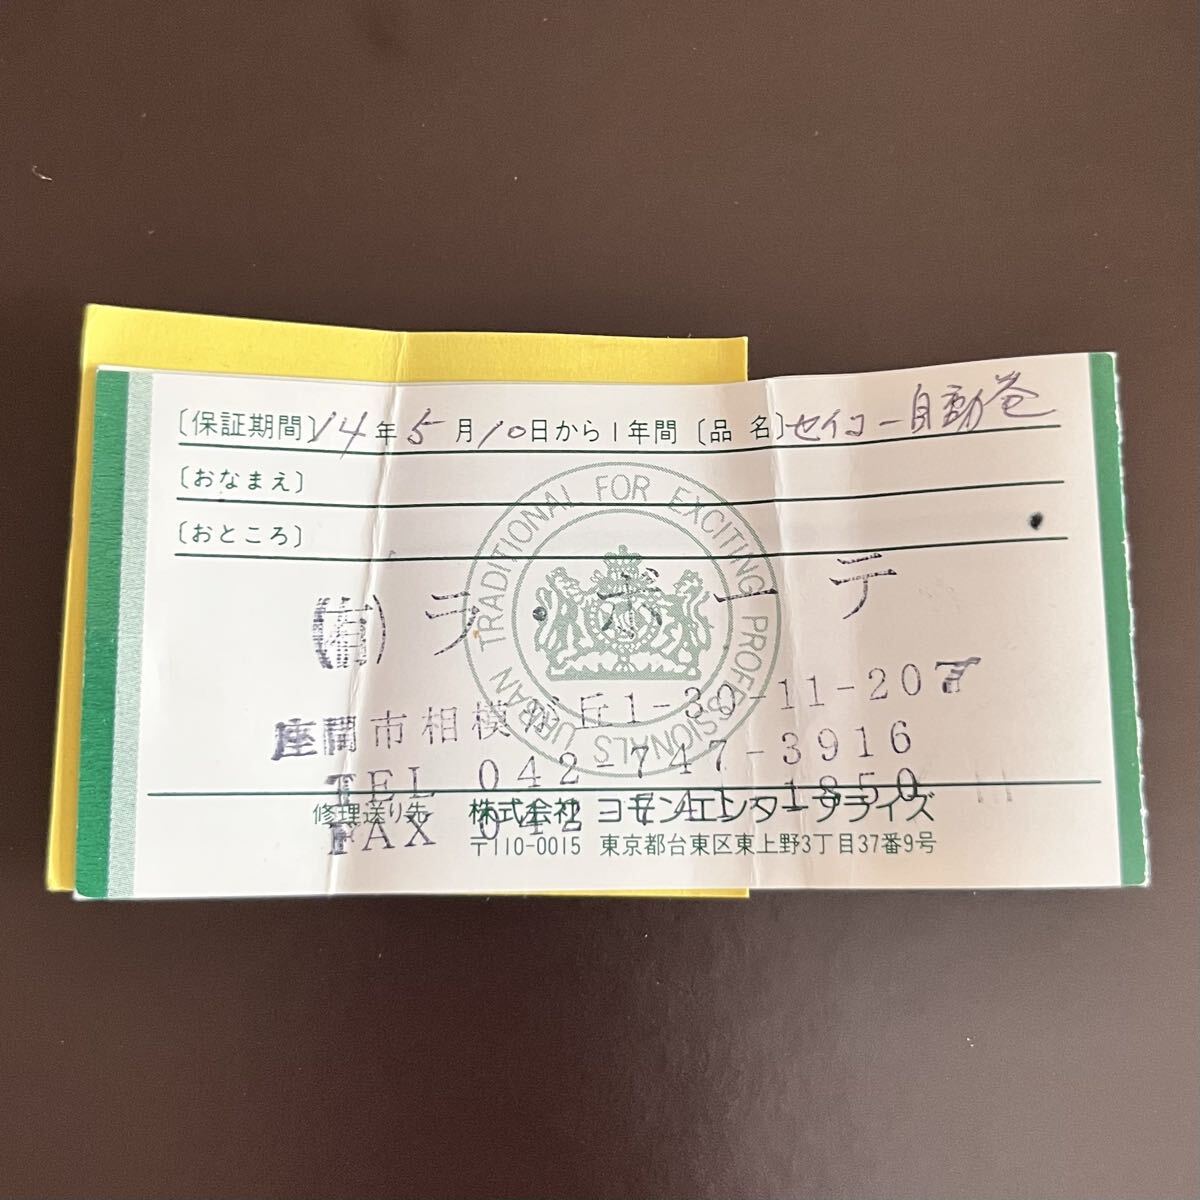 〔保証期間〕14年5月10日から1年間〔品 名〕セイコー自動巻
〔おなまえ〕
〔おところ〕
URBAN TRADITIONAL FOR EXCITING PROFESSIONALS
(有)ラ・ボーテ
座間市相模が丘1-30-11-207
TEL 042-747-3916
FAX 042-741-1850
修理送り先 株式会社 ヨモンエンタープライズ
〒110-0015 東京都台東区東上野3丁目37番9号